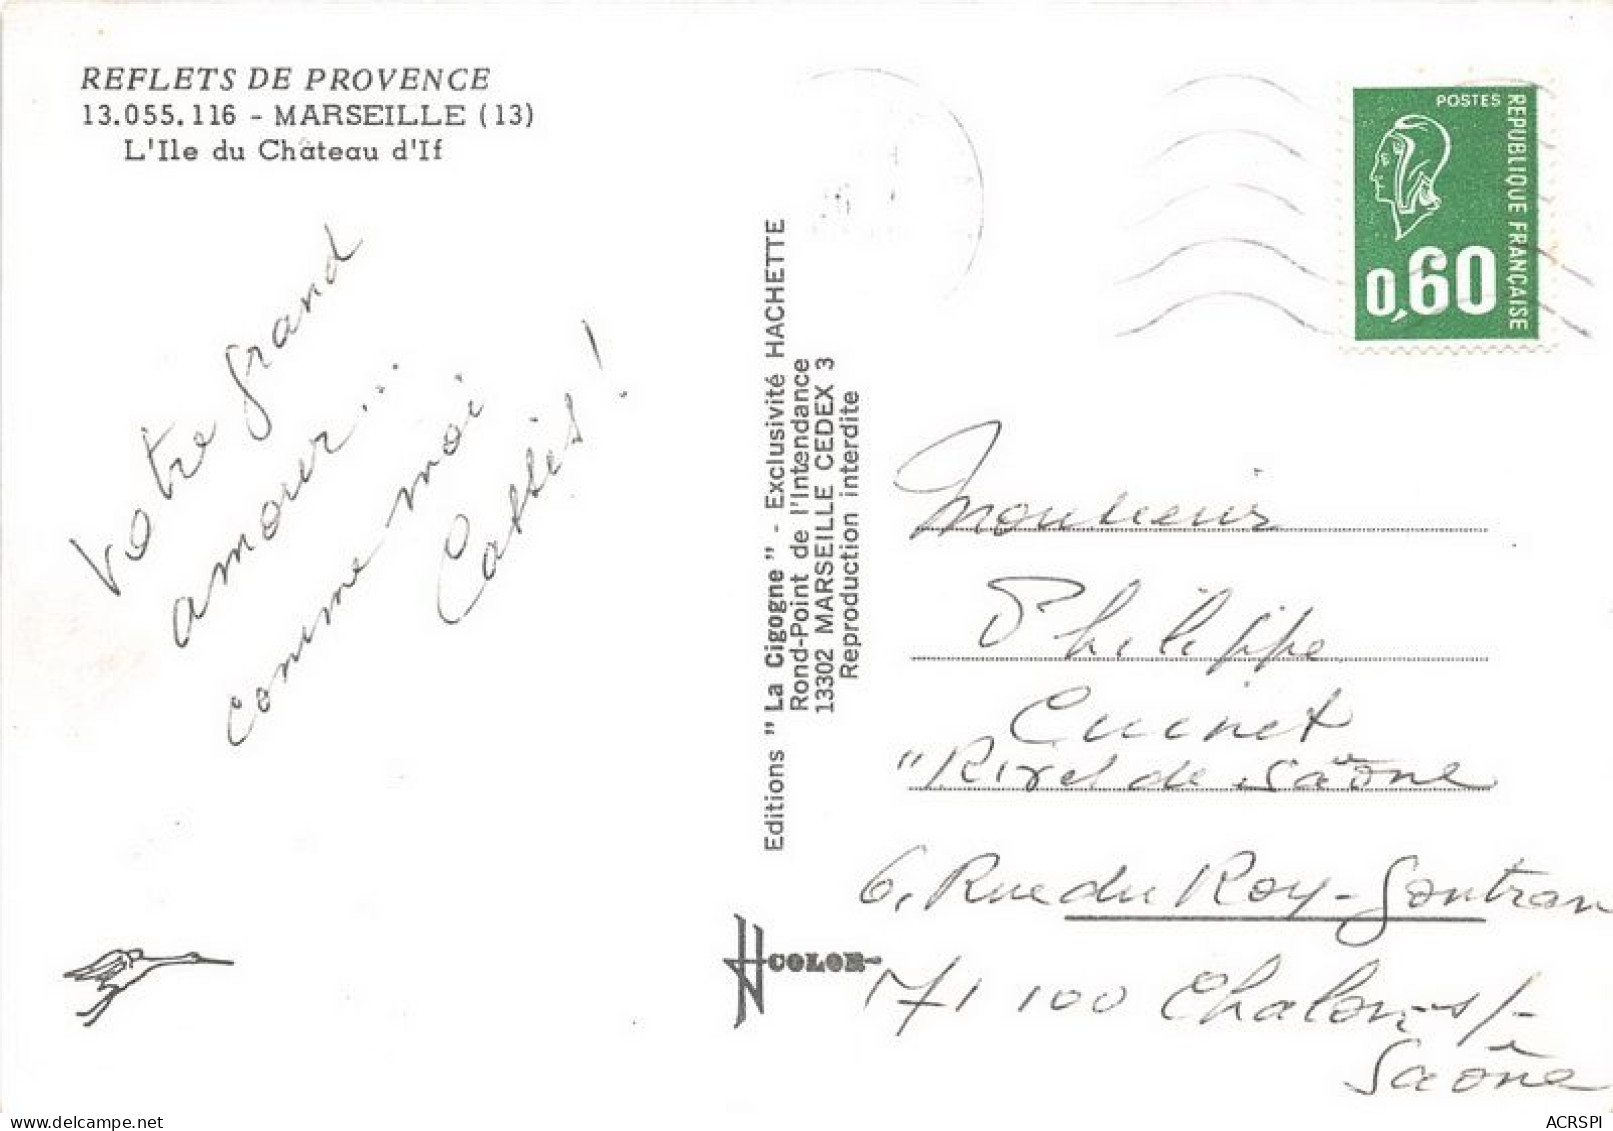 REFLETS DE PROVENCE
13.055.116 - MARSEILLE (13)
L'Ile du Château d'If
Votre grand
amour...
comme moi
Cassis !
Editions " La Cigogne " - Exclusivité HACHETTE
Rond-Point de l'Intendance
13302 MARSEILLE CEDEX 3
Reproduction interdite
COLOR
POSTES
REPUBLIQUE FRANÇAISE
0,60
Monsieur
Philippe
Cuinet
"Rives de Saône
6, Rue du Roy-Gontran
71 100 Chalon-s/-
Saône
ACRSPI
delcampe.net